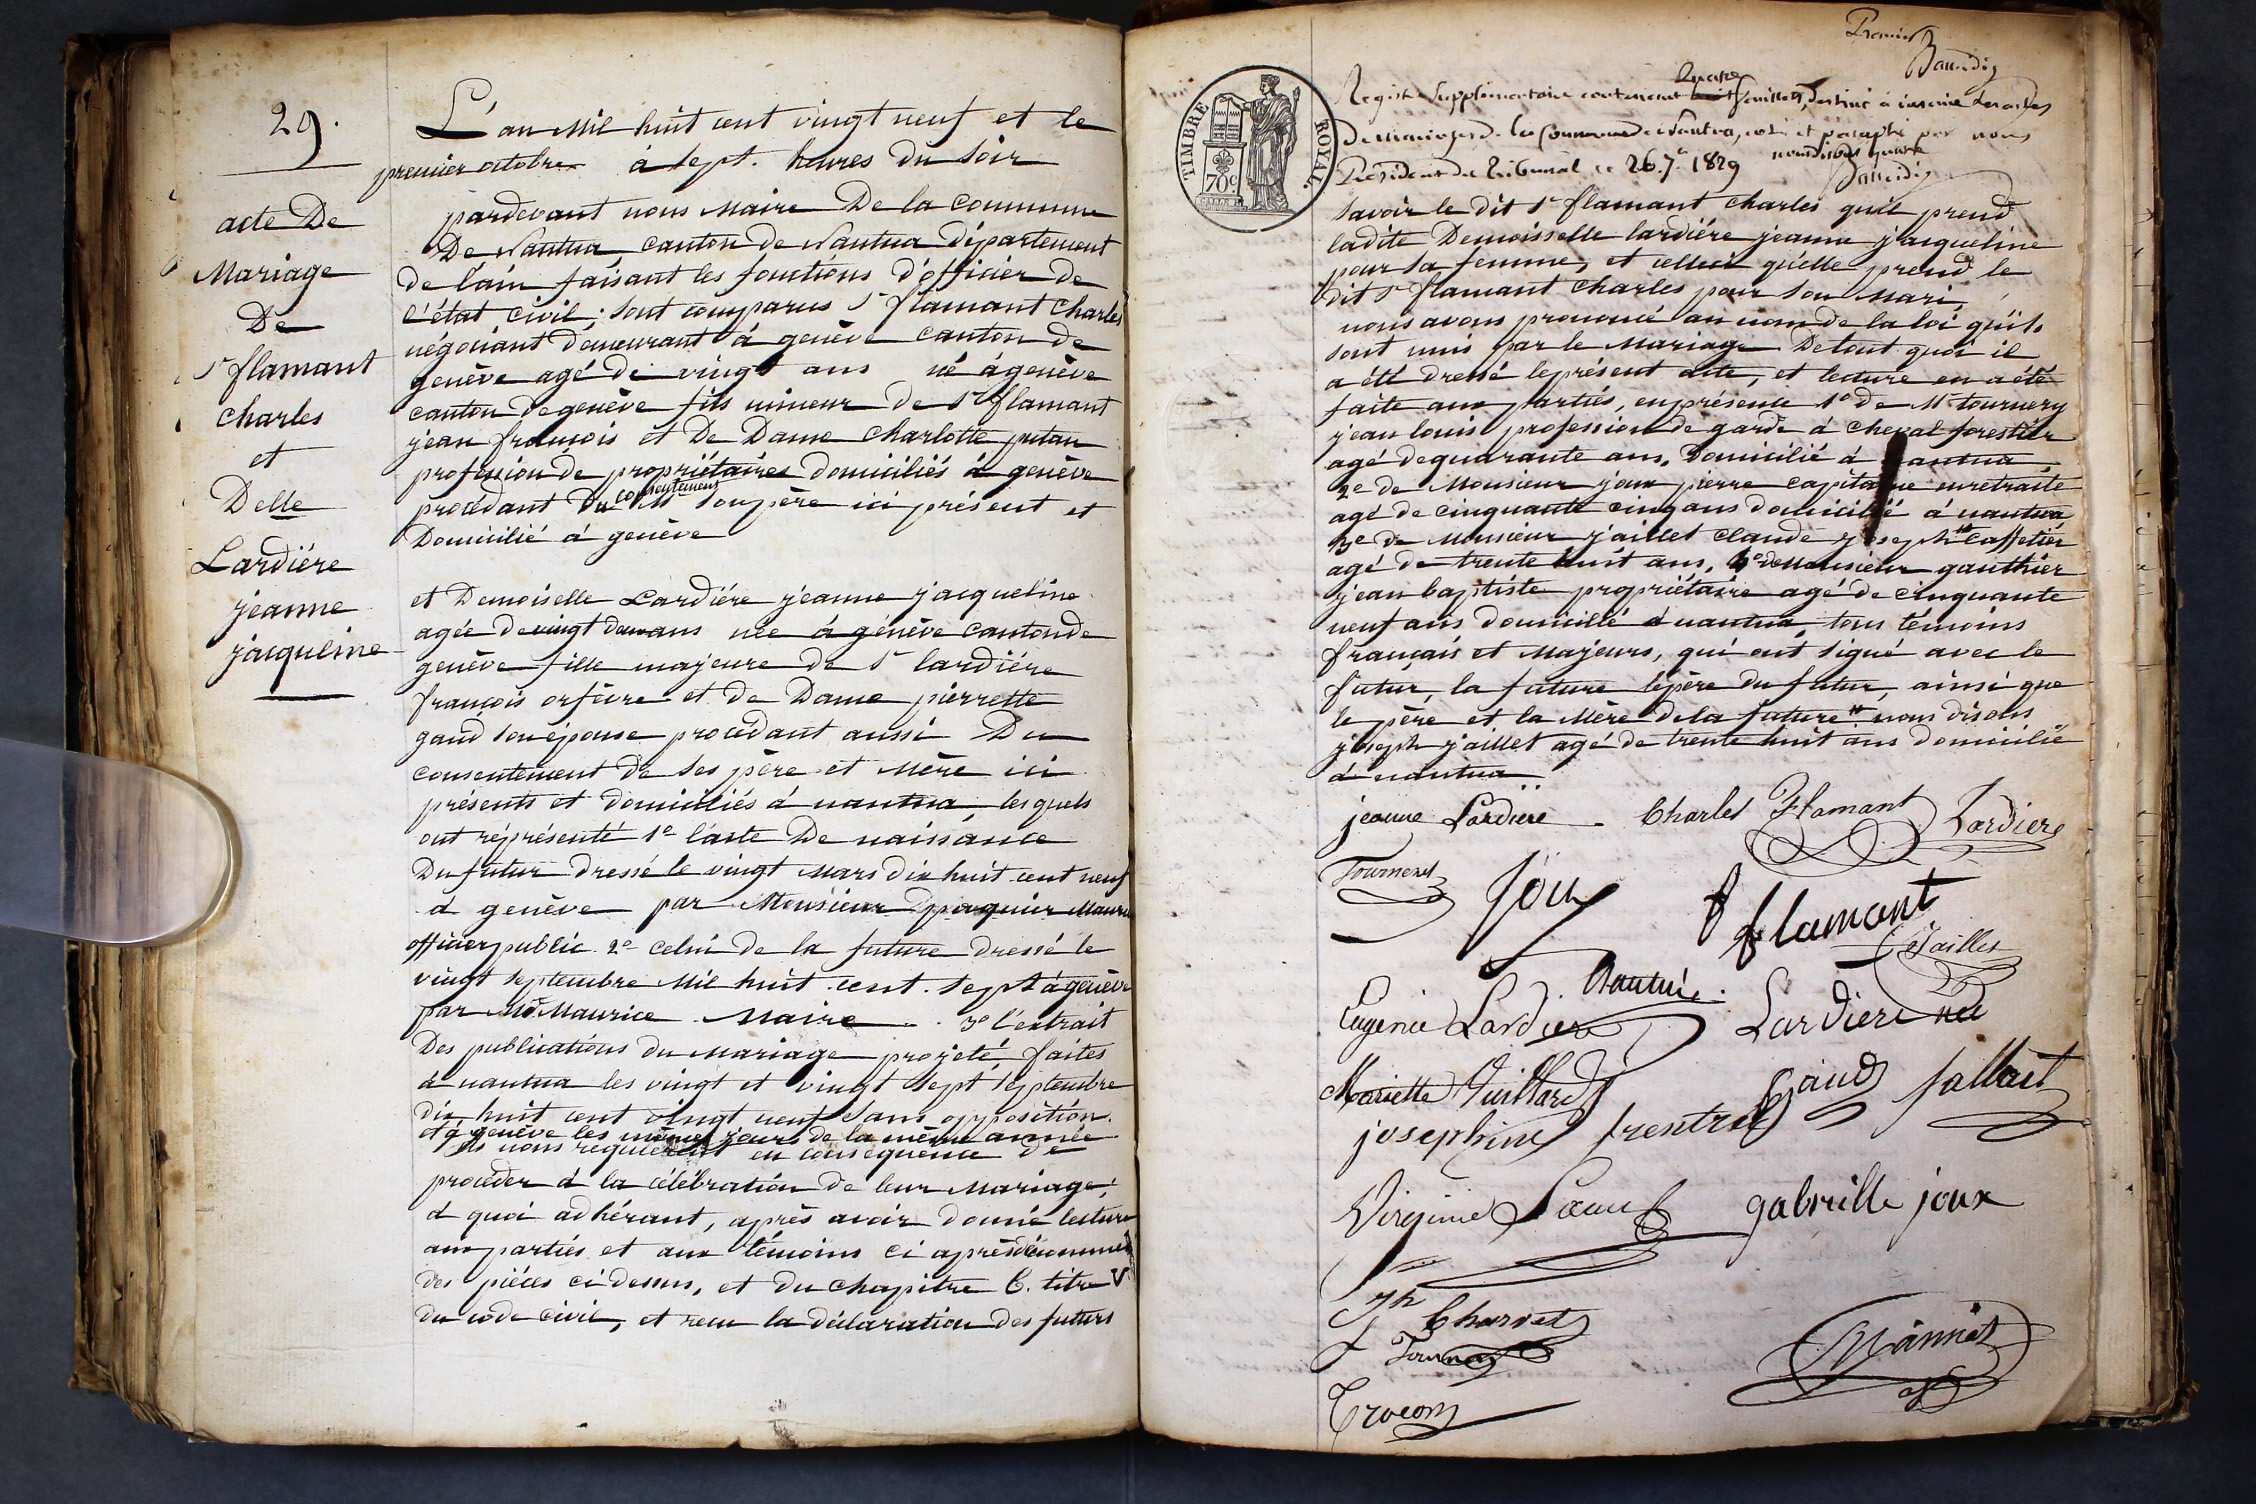 29.
acte De
Mariage
De
Sr flamant
charles
et
Delle
Lardiére
jeanne
jacqueline
L'an Mil huit cent vingt neuf et le
premier octobre à sept. heures du soir
pardevant nous Maire De la commune
De Nantua, canton de Nantua Département
de l'ain faisant les fonctions d'officier de
l'état civil; sont comparus Sr flamant Charles
négociant demeurant á genève canton de
genève agé de vingt ans né á genève
canton de genève fils mineur de Sr flamant
jean françois et De Dame charlotte
profession de propriétaires domiciliés á genève
procédant Du consentement son père ici présent et
Domicilié á genève
et Demoiselle Lardiére jeanne jacqueline
agée de vingt deux ans née á genève canton de
genève fille majeure de Sr lardiére
françois orfèvre et de Dame pierrette
gaud son epouse procédant aussi Du
consentement de ses père et Mère ici
présents et domiciliés á nantua, lesquels
ont réprésenté 1o l'acte De naissance
Du futur dressé le vingt Mars dix huit cent neuf
á genève par Monsieur
officier public 2o celui de la future dressé le
vingt septembre Mil huit cent. sept á genève
par Mr Maurice Maire 3o l'extrait
Des publications du Mariage projeté, faites
á nantua les vingt et vingt sept septembre
dix huit cent vingt neuf sans opposition.
et á genève les mêmes jours de la même année
Ils nous requierent en conséquence de
procéder á la célébration de leur Mariage;
á quoi adhérant, après avoir donné lecture
aux partiés et aux témoins ci après dénommés
des piéces ci dessus, et du chapitre 6. titre V
du code civil, et reçu la déclaration des futurs
Premier
Baundis
TIMBRE ROYAL.
70c
Registre Supplémentaire contenant quatre feuillets, destiné à inscrire les actes
de mariages de la Commune de Nantua, coté et paraphé par nous
Président du Tribunal le 26. 7e. 1829
Savoir le dit Sr flamant charles qu'il prend
ladite Demoisselle lardiére jeanne jacqueline
pour sa femme, et celleci qu'elle prend le
dit Sr flamant charles pour son Mari,
nous avons prononcé au nom de la loi qu'ils
sont unis par le Mariage. De tout quoi il
a été dressé le présent acte, et lecture en a été
faite aux partiés, en présence 1o de Mr tournery
jean louis profession de garde á cheval forestier
agé de quarante ans, Domicilié á nantua
2e de Monsieur joux pierre capitaine en retraite
agé de cinquante cinq ans domicilié á nantua
3e de Monsieur jaillet claude joseph caffetier
agé de trente huit ans, 4e de Monsieur gauthier
jean baptiste propriétaire agé de cinquante
neuf ans domicilié á nantua, tous témoins
français et Majeurs, qui ont signé avec le
futur, la future le père du futur, ainsi que
le père et la Mère de la future nous disons
joseph jaillet agé de trente huit ans domicilié
á nantua
jeanne Lardiere Charles Flamant Lardiere
Joux
flamant
Jaillet
Eugenie Lardiere Lardiere née
Gaud
Mariette Vuillard
josephine
Virginie gabrielle joux
Jh Charvet